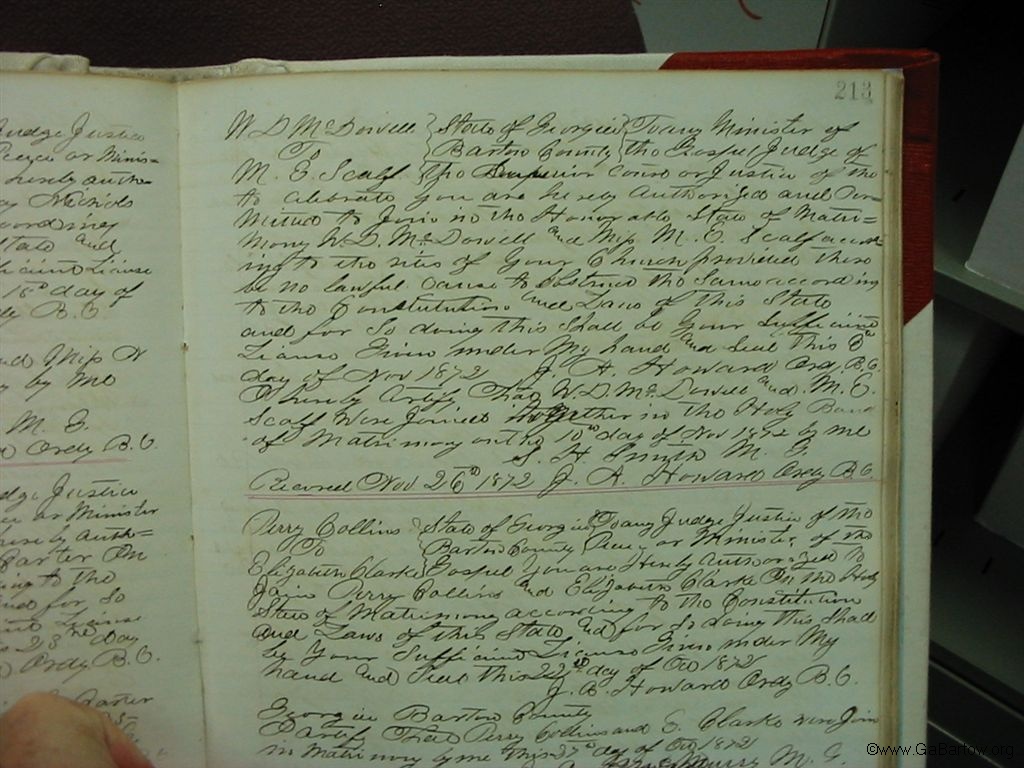 Judge Justice
Peace or Minis=
hereby autho
Nichols
according
State and
sufficient License
18th day of
B.C
and Miss N
by me
M. G.
Ordy B.C.
Judge Justice
or Minister
hereby auth=
Carter On
to the
and for So
License
23rd day
Ordy B.C.
Carter
213
W D McDowell } State of Georgia } To any Minister of
To } Bartow County } the Gospel Judge of
M. E. Scalf the Superior Court or Justice of the
to celebrate you are hereby Authorized and Per=
mitted to Join in the Honorable State of Matri=
mony W.D. McDowell and Miss M. E. Scalf accord
ing to the rites of Your Church provided there
be no lawful cause to obstruct the Same according
to the Constitution and Laws of this State
and for So doing this Shall be Your Sufficient
License Given under My hand and Seal this 8th
day of Nov 1872 J. A. Howard Ordy B.C.
I hereby Certify that W.D. McDowell and M. E.
Scalf Were Joined together in the Holy Band
of Matrimony on the 10th day of Nov 1872 by me
S. H. Smith M. G.
Record Nov 26th 1872 J. A. Howard Ordy B.C.
Perry Collins } State of Georgia } To any Judge Justice of the
To } Bartow County } Peace or Minister of the
Elizabeth Clarke } Gospel You are Hereby Authorized to
Join Perry Collins and Elizabeth Clarke In the Holy
State of Matrimony according to the Constitution
and Laws of this State and for So doing this Shall
be Your Sufficient License Given under My
hand and Seal this 22nd day of Oct 1872
J. A. Howard Ordy B.C.
Georgia Bartow County
Certify that Perry Collins and E Clarke were Join
in Matrimony by me this 27th day of Oct 1872
Murry M. G.
©www.GaBartow.org